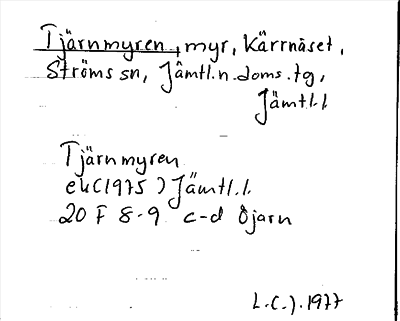 Tjärnmyren, myr, Kärrnäset,
Ströms sn, Jämtl.n.doms.tg,
Jämtl.l
Tjärnmyren
ek(1975) Jämtl.l.
20 F 8-9 c-d Öjarn
L.C.J.1977